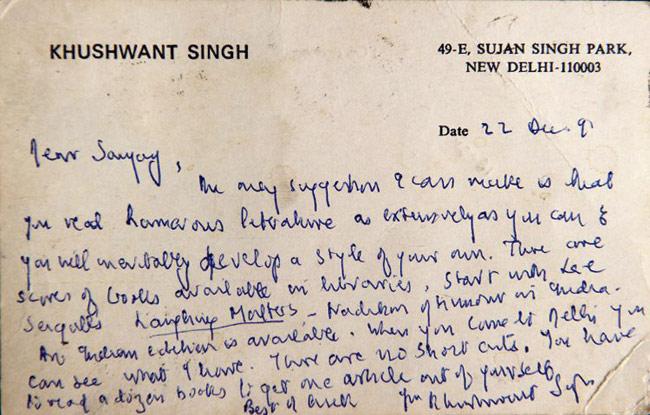 KHUSHWANT SINGH
49-E, SUJAN SINGH PARK,
NEW DELHI-110003
Date 22 Dec. 9
Dear Sanjay,
The only suggestion I can make is that
you read humorous literature as extensively as you can &
you will inevitably develop a style of your own. There are
scores of books available in libraries. Start with Lee
Seagulls Laughing Matters - Tradition of Humour in India.
An Indian edition is available. When you come to Delhi you
can see what I have. There are no short cuts. You have
to read a dozen books to get one article out of yourself
Best of luck
Khushwant Singh